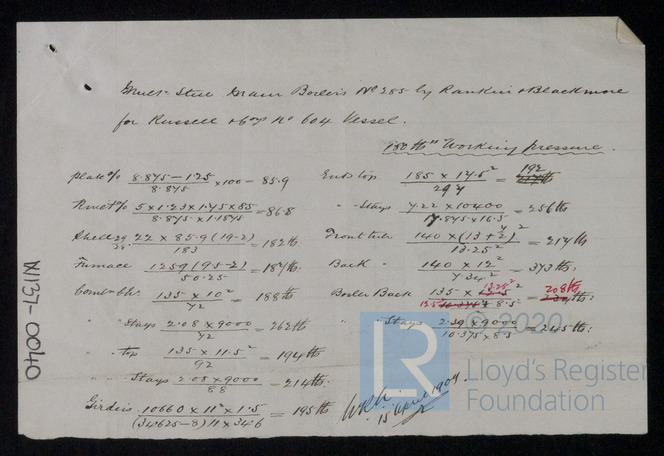 Mult. Steel Steam Boilers No 285 by Rankin & Blackmore
for Russell & Coy No 604 Vessel.
180 lbs Working pressure.
plate % 8.875 – 1.25 / 8.875 × 100 – 85.9
Rivet % 5 × 1.23 × 1.75 × 85 / 8.875 × 1.1875 = 86.8
Shell 22 × 85.9 (19-2) / 183 = 182 lbs
Furnace 1259 (9.5-2) / 50.25 = 187 lbs.
Comb. Ch. 135 × 10² / 72 = 188 lbs
" Stays 2.08 × 9000 / 72 = 262 lbs
" top 135 × 11.5² / 92 = 194 lbs
" Stays 2.08 × 9000 / 88 = 214 lbs.
Girders 10660 × 11² × 1.5 / (34.625-8) 11 × 34.6 = 195 lbs
Ends top 185 × 17.5² / 297 = 192
" Stays 7.22 × 10400 / 17.875 × 16.5 = 256 lbs
Front tube 140 × (13 + 7/2)² / 13.25² = 217 lbs
Back " 140 × 12² / 7.34² = 373 lbs.
Boiler Back 135 × 13.25² / 8.5² = 208 lbs
" Stays 2.39 × 9000 / 10.375 × 8.5 = 245 lbs.
15 April 1907
W137-0040
LR
© 2020
Lloyd's Register
Foundation